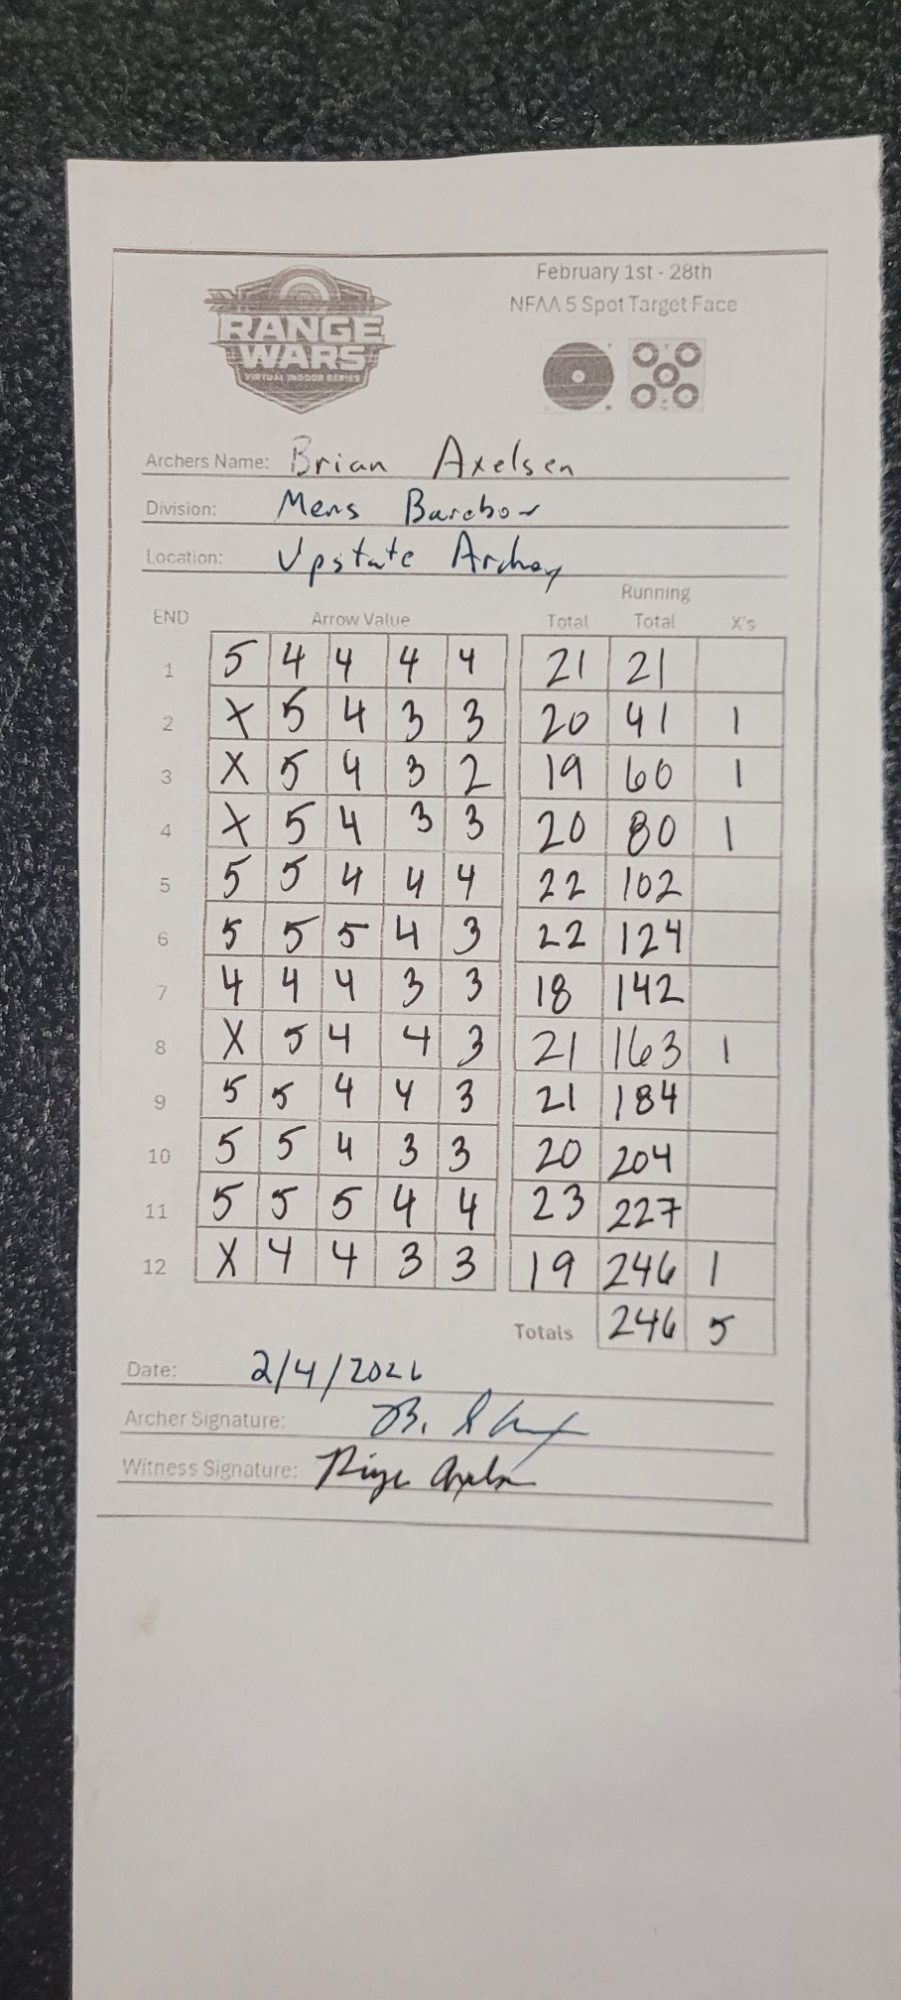 RANGE
WARS
VIRTUAL INDOOR SERIES
February 1st - 28th
NFAA 5 Spot Target Face
Archers Name: Brian Axelsen
Division: Mens Barebow
Location: Upstate Archey
END Arrow Value Total Running Total X's
1 5 4 4 4 4 21 21
2 X 5 4 3 3 20 41 1
3 X 5 4 3 2 19 60 1
4 X 5 4 3 3 20 80 1
5 5 5 4 4 4 22 102
6 5 5 5 4 3 22 124
7 4 4 4 3 3 18 142
8 X 5 4 4 3 21 163 1
9 5 5 4 4 3 21 184
10 5 5 4 3 3 20 204
11 5 5 5 4 4 23 227
12 X 4 4 3 3 19 246 1
Totals 246 5
Date: 2/4/2026
Archer Signature: B.
Witness Signature: